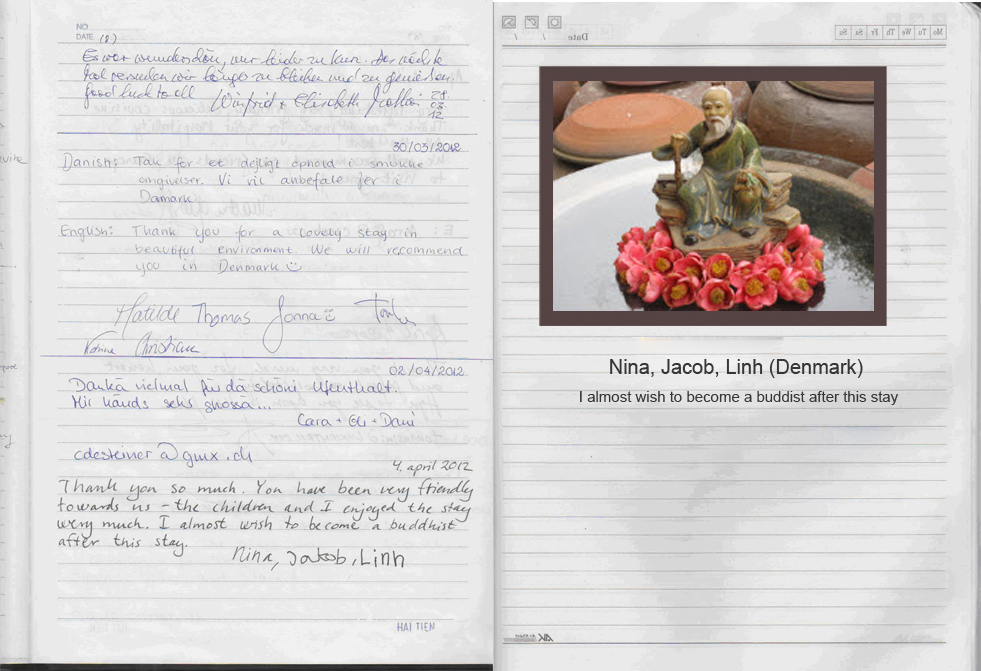 NO
DATE (8)
Es war wunderschön, nur leider zu kurz. Das nächste
Mal versuchen wir länger zu bleiben und zu genießen.
Good luck to all Winfried + Elisabeth
28.
03.
12
30/03/2012
Danish: Tak for et dejligt ophold i smukke
omgivelser. Vi vil anbefale jer i
Damark
English: Thank you for a lovely stay in
beautiful environment. We will recommend
you in Denmark ☺
Matilde Thomas Jonna ☺
02/04/2012
Dankä vielmal für dä schöni Ufenthalt.
Mir händs sehr gnossä...
Cara + Eli + Dani
cdesteiner@gmx.ch
4. april 2012
Thank you so much. You have been very friendly
towards us - the children and I enjoyed the stay
very much. I almost wish to become a buddhist
after this stay.
Nina, Jakob, Linh
HAI TIEN
Date / /
Mo Tu We Th Fr Sa Su
Nina, Jacob, Linh (Denmark)
I almost wish to become a buddist after this stay